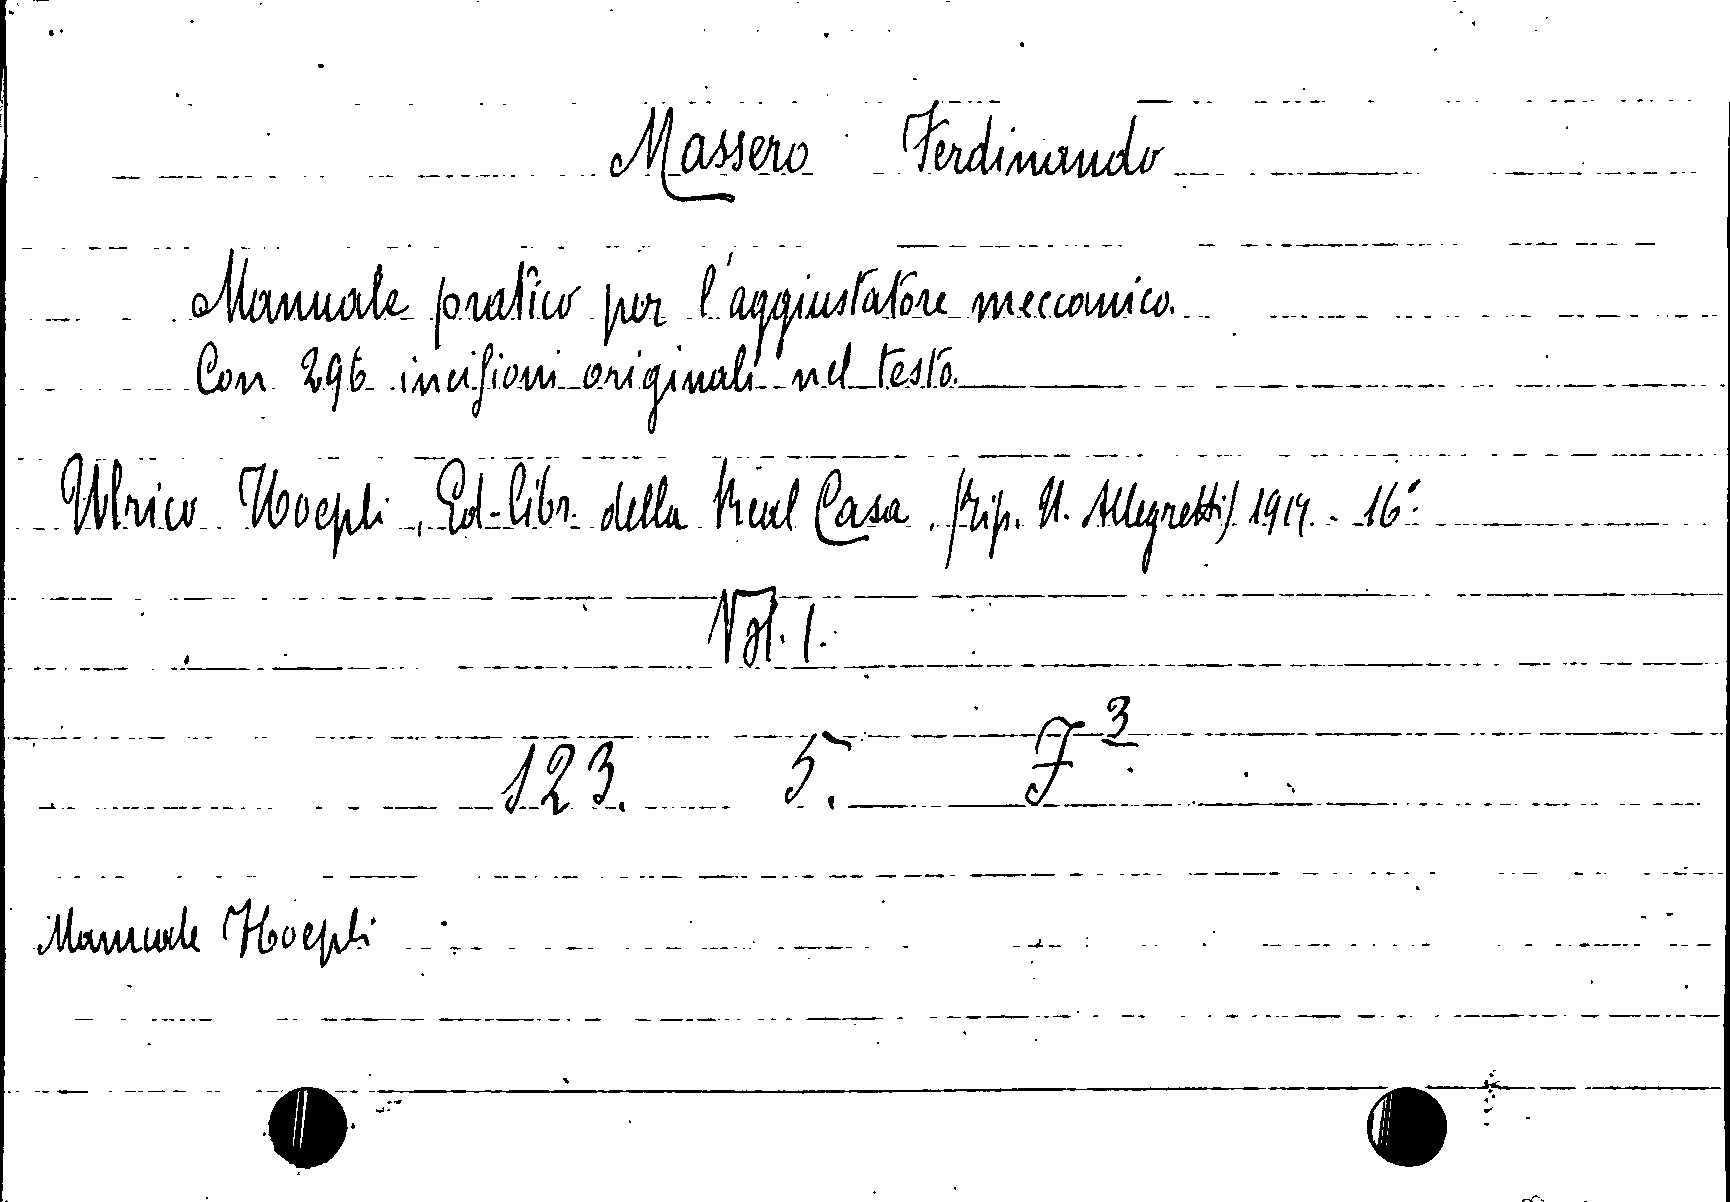 Massero Ferdinando
Manuale pratico per l'aggiustatore meccanico.
Con 296 incisioni originali nel testo.
Ulrico Hoepli, Ed-libr. della Real Casa. (tip. U. Allegretti) 1914. - 16°
Vol. 1.
123. 5. F 3
Manuale Hoepli